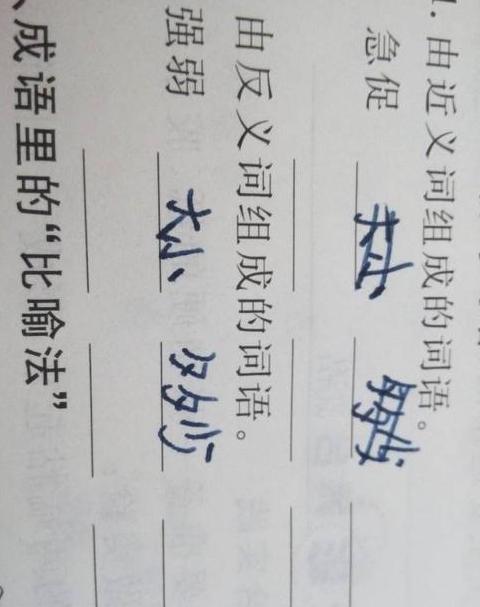 1. 由近义词组成的词语。
急促 大小 多少
由反义词组成的词语。
强弱 大小 多少
成语里的“比喻法”